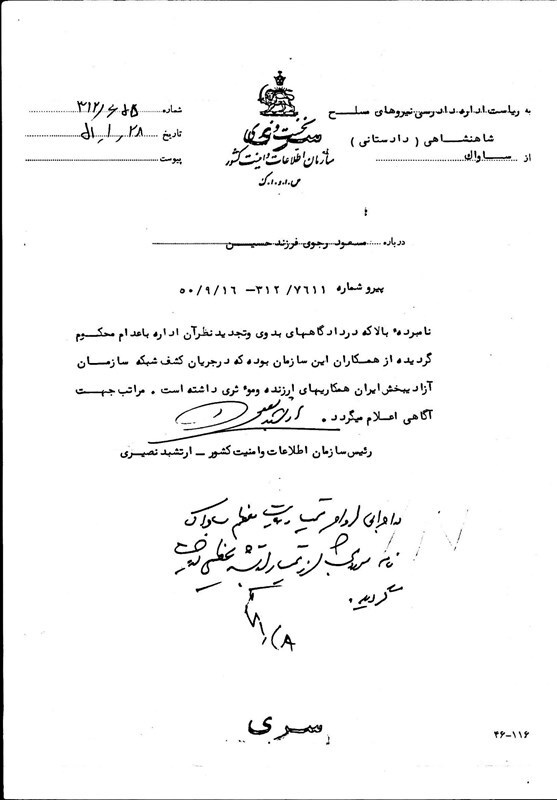 به ریاست اداره دادرسی نیروهای مسلح
شاهنشاهی ( دادستانی )
از ساواک
نخست وزیری
سازمان اطلاعات و امنیت کشور
س.ا.و.ا.ک
شماره
تاریخ ۲۸ ر ۱ ر ۵۱
پیوست
درباره مسعود رجوی فرزند حسین
پیرو شماره ۷۶۱۱/ ۳۱۲- ۵۰/۹/۱۶
نامبرده بالا که در دادگاههای بدوی و تجدید نظر آن اداره باعدام محکوم
گردیده از همکاران این سازمان بوده که در جریان کشف شبکه سازمان
آزادیبخش ایران همکاریهای ارزنده و موثری داشته است . مراتب جهت
آگاهی اعلام میگردد .
رئیس سازمان اطلاعات و امنیت کشور – ارتشبد نصیری
گردید.
سری
۴۶-۱۱۶